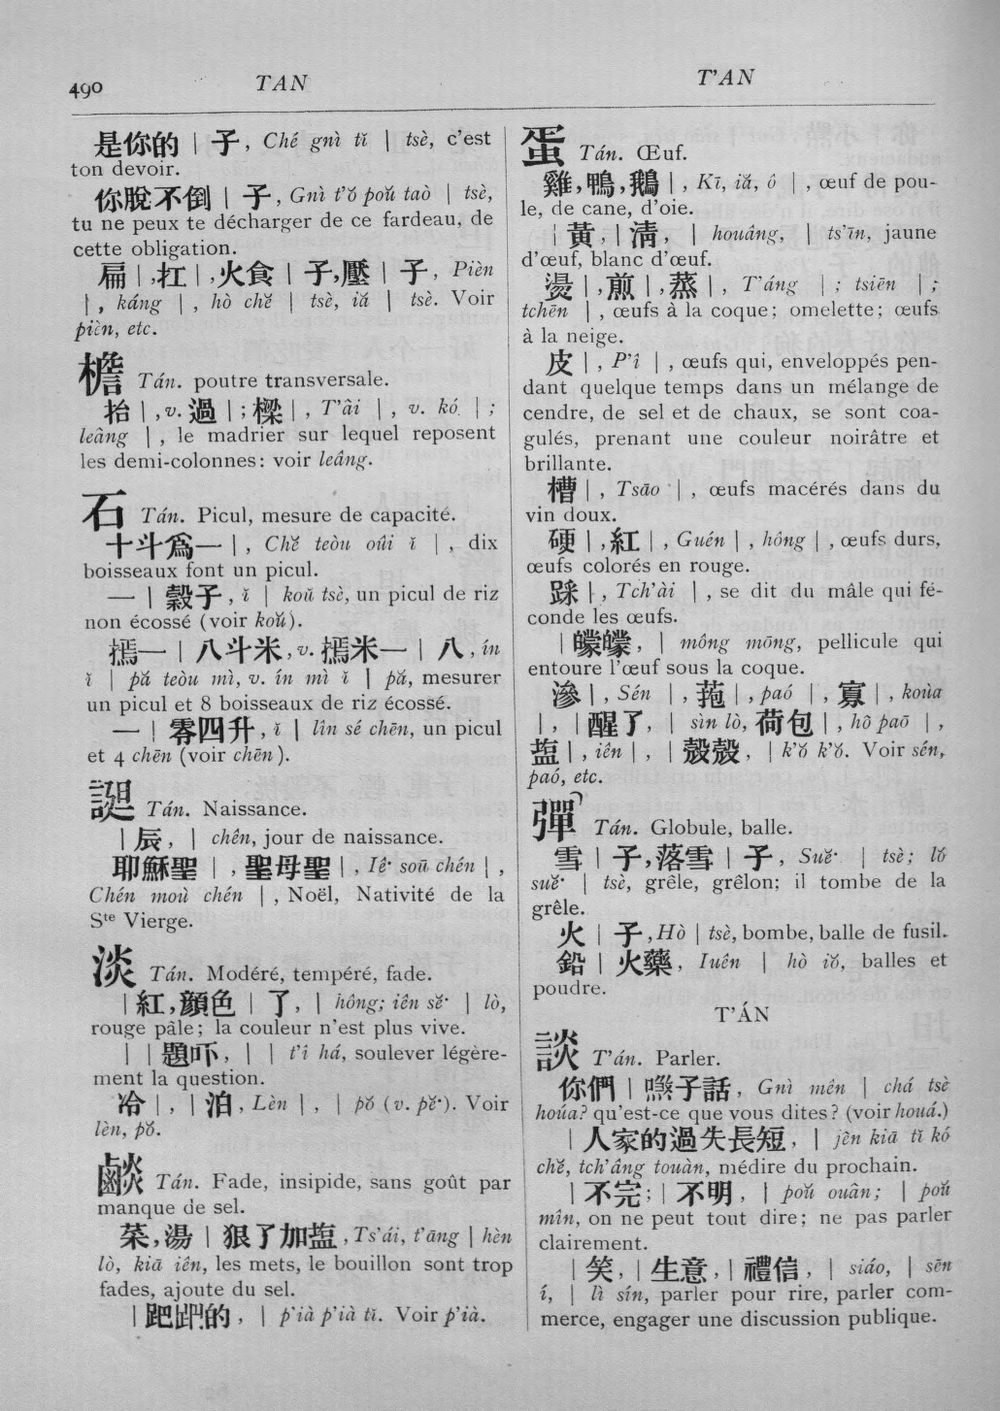 490
TAN
T’AN
是你的 | 子, Ché gnì tǐ | tsè, c’est
ton devoir.
你脫不倒 | 子, Gnì t’ǒ poǔ taò | tsè,
tu ne peux te décharger de ce fardeau, de
cette obligation.
扁 | ,扛 | ,火食 | 子,壓 | 子, Pièn
| , káng | , hò chě | tsè, iá | tsè. Voir
pièn, etc.
檐 Tán. poutre transversale.
抬 | ,v. 過 | ; 樑 | , T’âi | , v. kó | ;
leâng | , le madrier sur lequel reposent
les demi-colonnes: voir leâng.
石 Tán. Picul, mesure de capacité.
十斗爲一 | , Chě teòu oûi ǐ | , dix
boisseaux font un picul.
一 | 穀子, ǐ | koǔ tsè, un picul de riz
non écossé (voir koǔ).
一 | 八斗米, v. 米一 | 八, ín
ǐ | pǎ teòu mì, v. ín mì ǐ | pǎ, mesurer
un picul et 8 boisseaux de riz écossé.
一 | 零四升, ǐ | lîn sé chēn, un picul
et 4 chēn (voir chēn).
誕 Tán. Naissance.
| 辰, | chên, jour de naissance.
耶穌聖 | ,聖母聖 | , Iê· soū chén | ,
Chén moù chén | , Noël, Nativité de la
Ste Vierge.
淡 Tán. Modéré, tempéré, fade.
| 紅,顏色 | 了, | hông; iên sě· | lò,
rouge pâle; la couleur n’est plus vive.
| | 題吓, | | t’î há, soulever légère-
ment la question.
冷 | , | 泊, Lèn | , | pǒ (v. pě·). Voir
lèn, pǒ.
Tán. Fade, insipide, sans goût par
manque de sel.
菜,湯 | 狠了加塩, Ts’ái, t’āng | hèn
lò, kiā iên, les mets, le bouillon sont trop
fades, ajoute du sel.
| 的, | p’ià p’ià tǐ. Voir p’ià.
蛋 Tán. Œuf.
雞,鴨,鵝 | , Kī, iǎ, ô | , œuf de pou-
le, de cane, d’oie.
| 黃, | 清, | houâng, | ts’īn, jaune
d’œuf, blanc d’œuf.
燙 | ,煎 | ,蒸 | , T’áng | ; tsiēn | ;
tchēn | , œufs à la coque; omelette; œufs
à la neige.
皮 | , P’î | , œufs qui, enveloppés pen-
dant quelque temps dans un mélange de
cendre, de sel et de chaux, se sont coa-
gulés, prenant une couleur noirâtre et
brillante.
槽 | , Tsāo | , œufs macérés dans du
vin doux.
硬 | ,紅 | , Guén | , hông | , œufs durs,
œufs colorés en rouge.
踩 | , Tch’ài | , se dit du mâle qui fé-
conde les œufs.
| , | mông mōng, pellicule qui
entoure l’œuf sous la coque.
滲 | , Sén | , 菢 | , paó | , 寡 | , koùa
| , | 醒了, | sìn lò, 荷包 | , hô paō | ,
塩 | , iên | , | 殼殼, | k’ǒ k’ǒ. Voir sén,
paó, etc.
彈 Tán. Globule, balle.
雪 | 子,落雪 | 子, Suě· | tsè; lǒ
suě· | tsè, grêle, grêlon; il tombe de la
grêle.
火 | 子, Hò | tsè, bombe, balle de fusil.
鉛 | 火藥, Iuên | hò iǒ, balles et
poudre.
T’ÁN
談 T’án. Parler.
你們 | 子話, Gnì mên | chá tsè
hoúa? qu’est-ce que vous dites? (voir houá.)
| 人家的過失長短, | jèn kiā tǐ kó
chě, tch’âng touàn, médire du prochain.
| 不完; | 不明, | poǔ ouân; | poǔ
mîn, on ne peut tout dire; ne pas parler
clairement.
| 笑, | 生意, | 禮信, | siáo, | sēn
í, | lì sín, parler pour rire, parler com-
merce, engager une discussion publique.